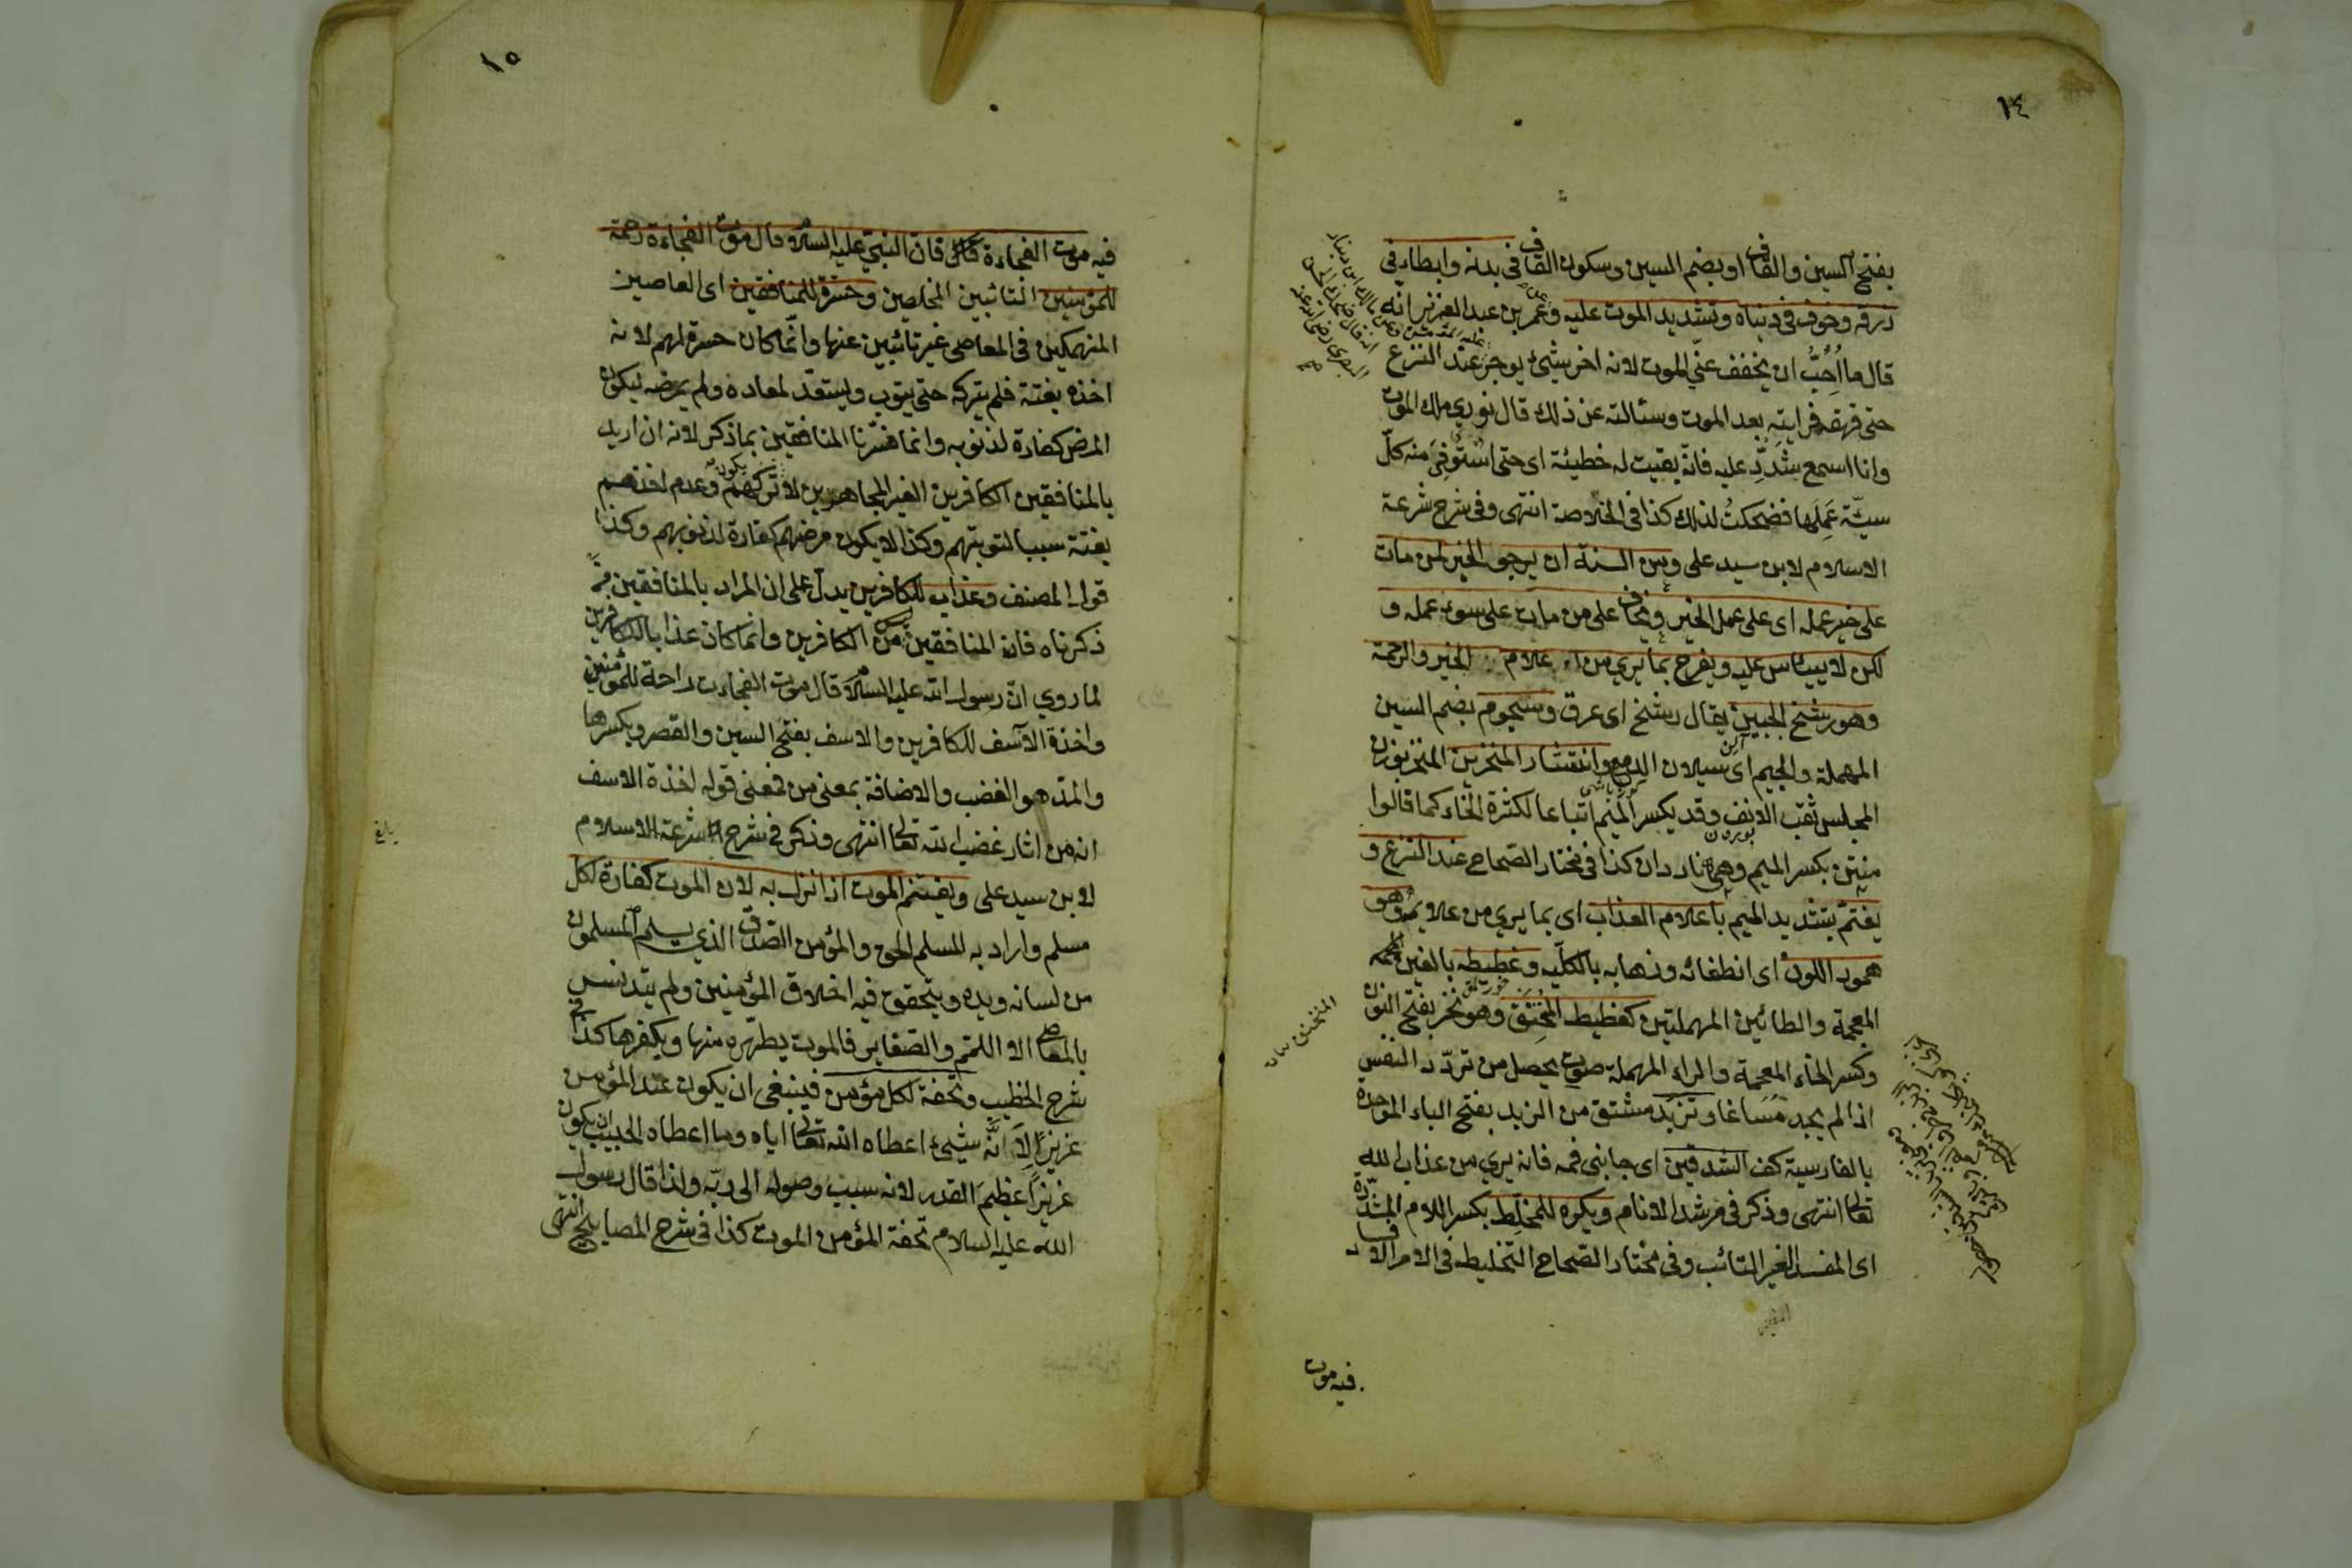 ١٤
بفتح السين والقاف او بضم السين وسكون القاف في بدنه وابطاء في
رزقه وخوف في دنياه وتشديد الموت عليه وعمر بن عبد العزيز انه
قال ما اُحِبُّ ان يخفف عنّي الموت لانه اخر شيئ يوجر عند النزع
حتى قهقه فرايته بعد الموت وسئالته عن ذلك قال نوري ملك الموت
وانا اسمع شَدِّد عليه فانه بقيت له خطيئة اى حتى استوفِىَ منه كلّ
سيئة عَمِلَها فضحكتُ لذلك كذا في الخلاصة انتهى وفى شرح شرعة
الاسلام لابن سيد على ومن السنة ان يرجو الخير لمن مات
على خير عمله اى على عمل الخير ويخاف على من مات على سوء عمله و
لكن لا ييئاس عليه ويفرح بما يرى من اعلام الخير والرحمة
وهو رشح الجبين يقال رشح اى عرق وسجوم بضم السين
المهملة والجيم اى سيلان الدمع وانتشار المنخرين المنخر بوزن
المجلس ثقب الانف وقد يكسر الميم اتباعا لكثرة الخاء كما قالوا
منتن بكسر الميم وهى نادران كذا فى مختار الصّحاح عند النزع و
يغتمّ بتشديد الميم باعلام العذاب اى بما يرى من علاويمه وهو
همود اللون اى انطفائه وذهابه بالكلّيه وغطيطه بالغين
المعجمة والطائين المهملتين كغطيط المُخْتَنِق وهو نخر بفتح النون
وكسر الخاء المعجمة والراء المهملة صوت يحصل من تردّد النفس
اذا لم يجد مَسَاغا وتزبد مشتق من الزبد بفتح الباء الموحدة
بالفارسية كف الشدقين اى جانبى فمه فانه يرى من عذاب الله
تعالى انتهى وذكر فى مرشد الانام ويكره للمخلِّط بكسر اللام المشدّدة
اى المفسد الغير التائب وفى مختار الصّحاح التخليط فى الامر الافساد
فيه موت
١٥
فيه موت الفجاءة قال فان النبيّ عليه السلام قال موت الفجاءة رحمة
للمؤمنين التائبين المخلصين وحسرة للمنافقين اى العاصين
المنهمكين فى المعاصى غير تائبين عنها وانّما كان حسرة لهم لانه
اخذه بغتة فلم يتركه حتى يتوب ويستعدّ لمعاده ولم يمرضه ليكون
المرض كفارة لذنوبه وانما فسّرنا المنافقين بما ذكر لانه ان اريد
بالمنافقين الكافرين الغير المجاهرين لا يكون تركهم وعدم اخذهم
بغتة سببا لتوبتهم وكذا لا يكون مرضهم كفارة لذنوبهم وكذا
قول المصنف وعذاب للكافرين يدلّ على ان المراد بالمنافقين ممّا
ذكرناه فان المنافقين من الكافرين وانما كان عذابا للكافرين
لما روى انّ رسول الله عليه السلام قال موت الفجاءت راحة للمؤمنين
واخذة الآسف للكافرين والاسف بفتح السين والقصر وبكسرها
والمدّ هو الغضب والاضافة بمعنى من فمعنى قوله اخذة الاسف
انه من اثار غضب الله تعالى انتهى وذكر فى شرح شرعة الاسلام
لابن سيد على ويغتنم الموت اذا نزل به لان الموت كفارة لكل
مسلم واراد به المسلم الحق والمؤمن الصّدق الذى يسلم المسلمون
من لسانه ويده ويتحقق فيه اخلاق المؤمنين ولم يتدنس
بالمعاصى الا اللمم والصّغاير فالموت يطهّره منها ويكفرها كذا فى
شرح الخطيب وتحفة لكل مؤمن فينبغى ان يكون عند المؤمن
عزيزاً لِاَنَّه شيئ اعطاه الله تعالى اياه وما اعطاه الحبيب يكون
عزيزاً عظيمَ القدر لانه سبب وصوله الى ربّه ولذا قال رسول
الله عليه السلام تحفة المؤمن الموت كذا فى شرح المصابيح انتهى